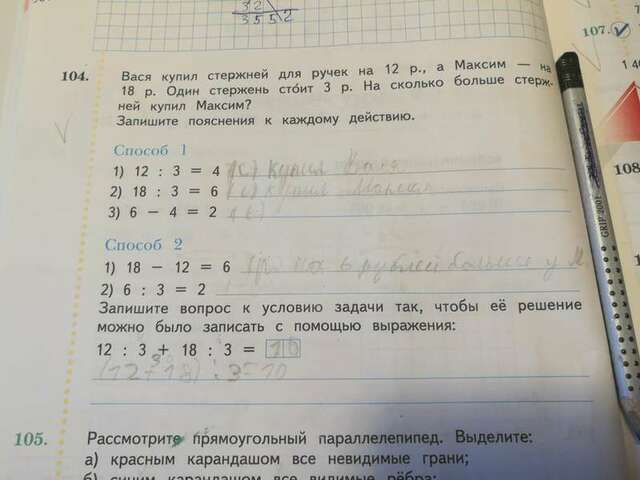 32
35 5 2
107.
104. Вася купил стержней для ручек на 12 р., а Максим — на
18 р. Один стержень стоит 3 р. На сколько больше стерж-
ней купил Максим?
Запишите пояснения к каждому действию.
Способ 1
1) 12 : 3 = 4 (с) купил Вася
2) 18 : 3 = 6 (с) купил
3) 6 − 4 = 2 (с)
Способ 2
1) 18 − 12 = 6 (р. рублей больше у М
2) 6 : 3 = 2
Запишите вопрос к условию задачи так, чтобы её решение
можно было записать с помощью выражения:
12 : 3 + 18 : 3 = 10
(12+18) : 3=10
105. Рассмотрите прямоугольный параллелепипед. Выделите:
а) красным карандашом все невидимые грани;
б) синим карандашом все видимые рёбра;
1 40
108
GRIP 2001